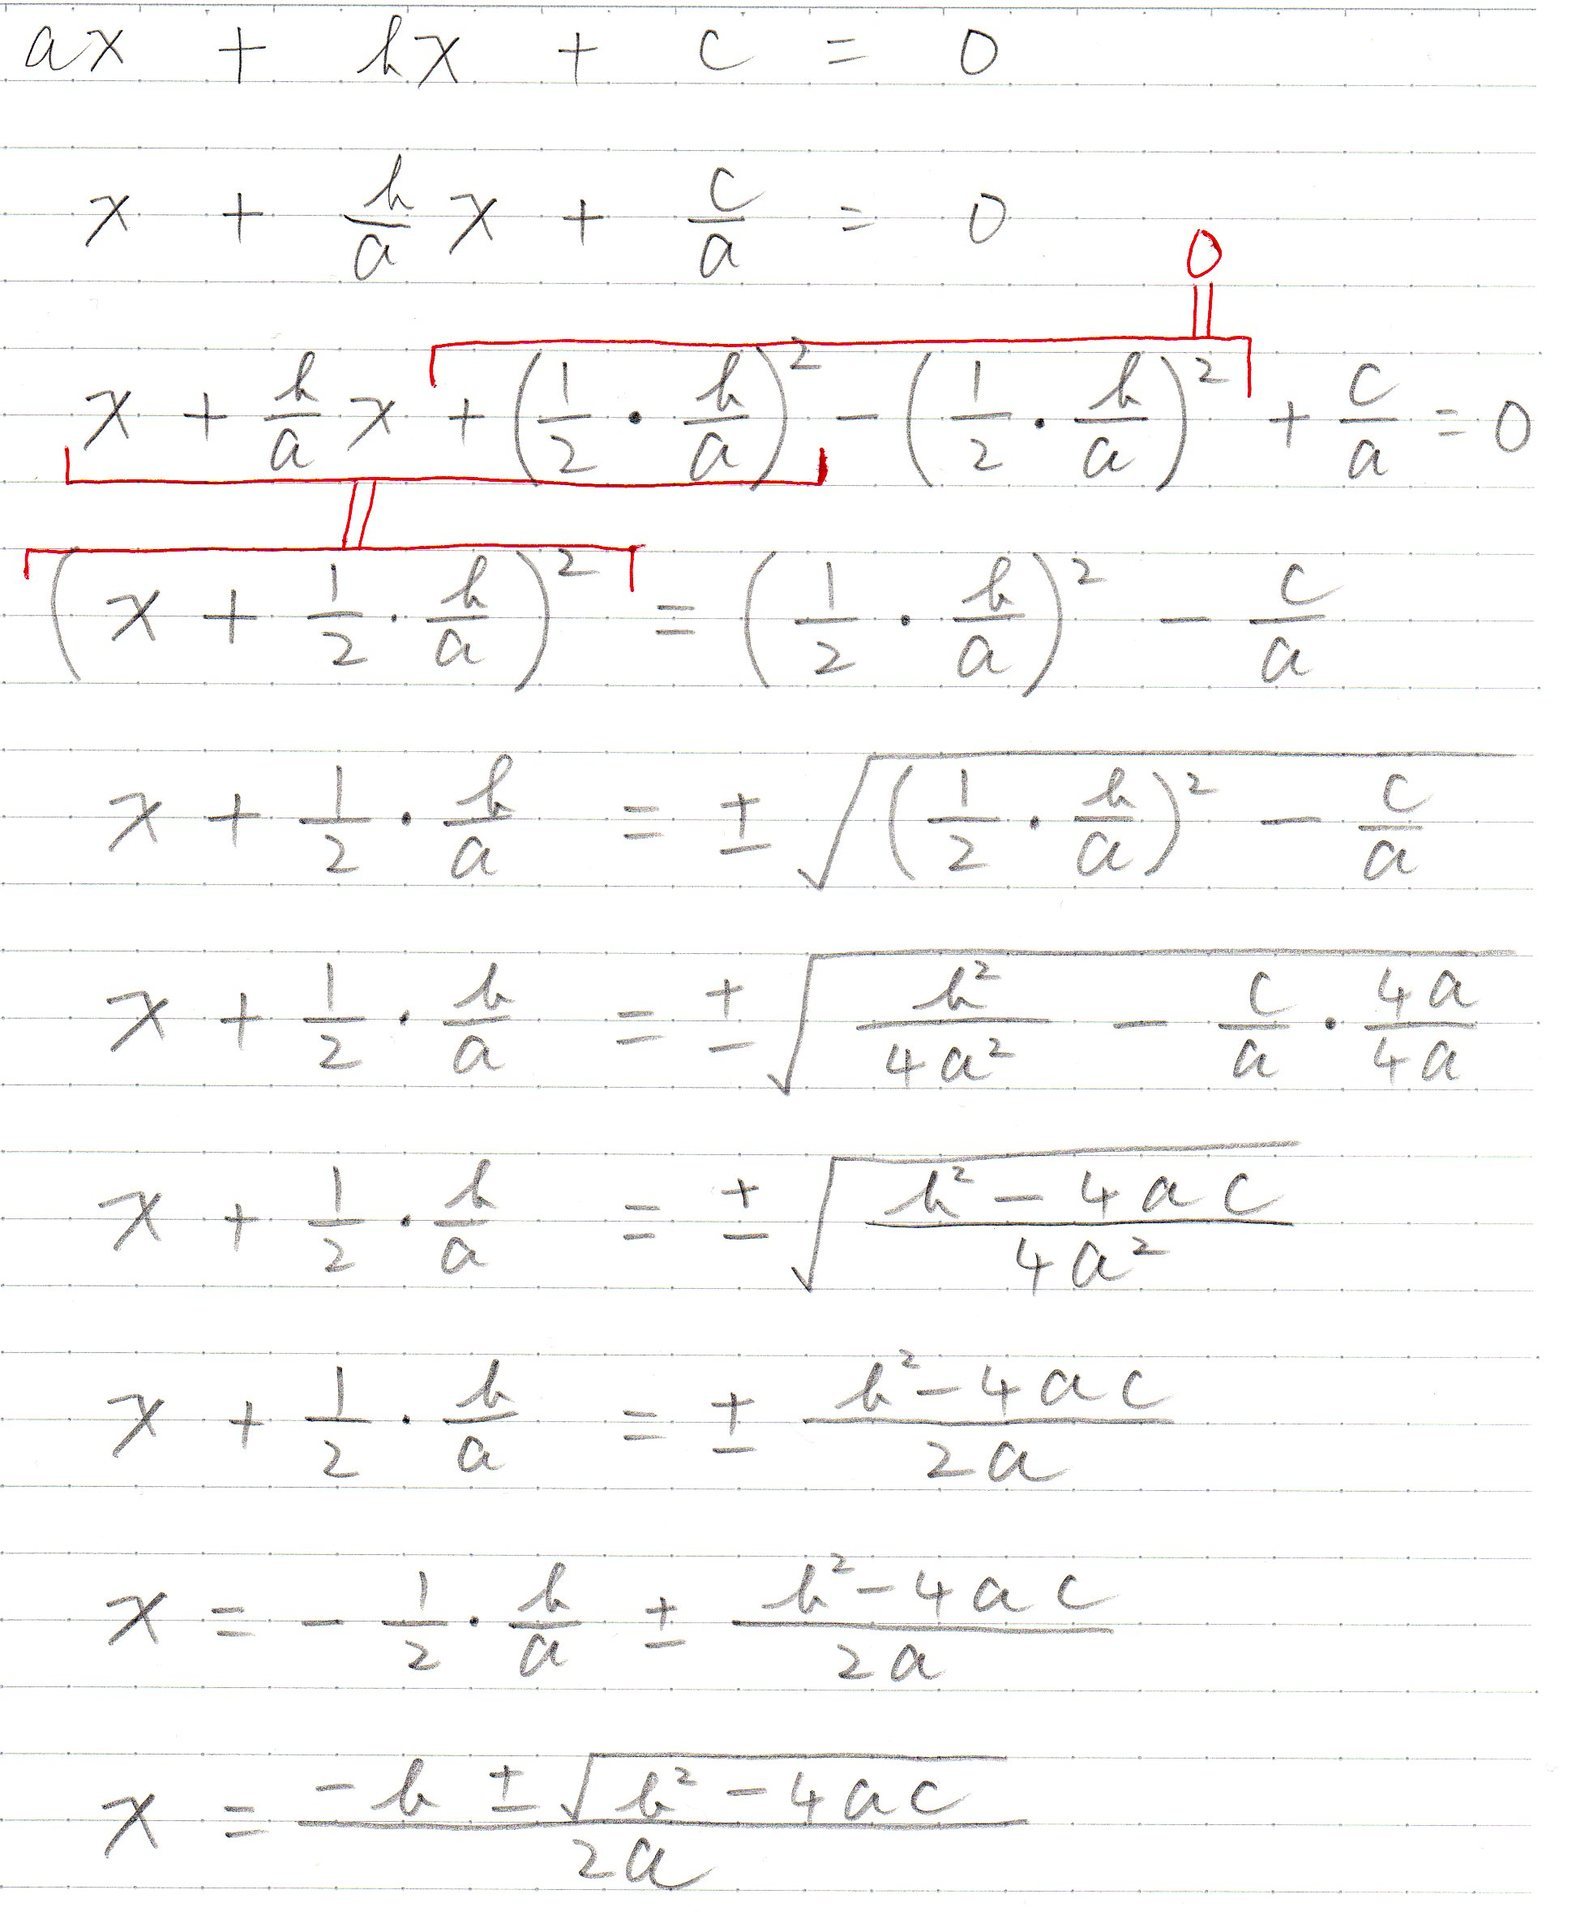 ax + bx + c = 0
x + b/a x + c/a = 0
0
||
x + b/a x + (1/2 · b/a)² − (1/2 · b/a)² + c/a = 0
||
(x + 1/2 · b/a)² = (1/2 · b/a)² − c/a
x + 1/2 · b/a = ± √((1/2 · b/a)² − c/a)
x + 1/2 · b/a = ± √(b²/4a² − c/a · 4a/4a)
x + 1/2 · b/a = ± √((b² − 4ac)/4a²)
x + 1/2 · b/a = ± (b² − 4ac)/2a
x = − 1/2 · b/a ± (b² − 4ac)/2a
x = (−b ± √(b² − 4ac))/2a